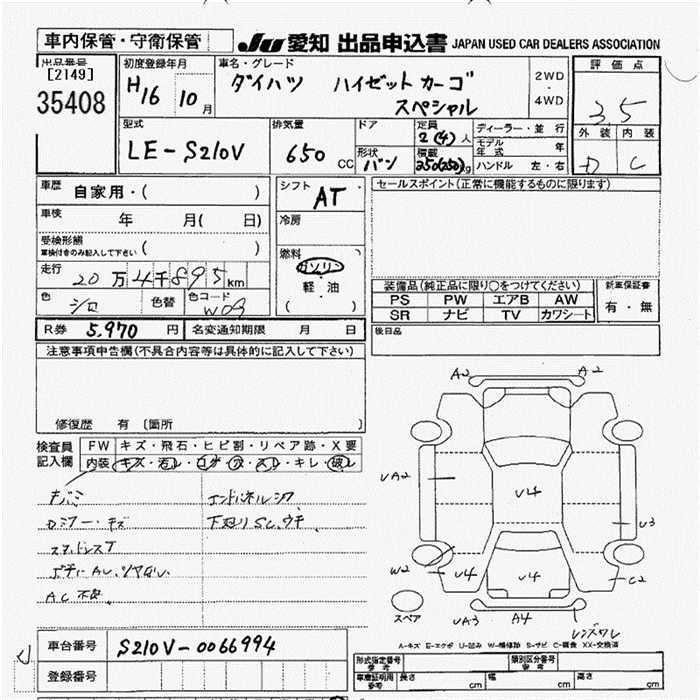 車内保管・守衛保管
JU 愛知 出品申込書 JAPAN USED CAR DEALERS ASSOCIATION
出品番号
[2149]
35408
初度登録年月
H16 10月
車名・グレード
ダイハツ ハイゼットカーゴ
スペシャル
2WD
・
4WD
評価点
3.5
外装 内装
D C
型式
LE-S210V
排気量
650 CC
ドア
形状
バン
定員
2(4)人
積載
350(250)kg
ディーラー・並行
モデル年式 年
ハンドル 左・右
車歴 自家用・( )
車検 年 月( 日)
受検形態
車検付きのみ記入して下さい ( )
走行 20万4千895km
色 シロ 色替 色コード W09
シフト AT
冷房
燃料
ガソリン
軽・油
( )
セールスポイント(正常に機能するものに限ります)
装備品(純正品に限り○をつけてください)
PS PW エアB AW
SR ナビ TV カワシート
新車保証書
有・無
R券 5,970円 名変通知期限 月 日
後日品
注意事項申告欄(不具合内容等は具体的に記入して下さい)
修復歴 有 〔箇所
検査員
記入欄
FW キズ・飛石・ヒビ割・リペア跡・X要
内装 キズ・汚レ・コゲ・穴・スレ・キレ・破レ
キバミ エンドパネルシワ
Dミラー・キズ 下廻りSC、ウキ
スタッドレスT
AC不良
A2 A2
UA2
U4
U3
W2 U4 U4 C2
スペア UA3 A4 レンズワレ
A-キズ E-エクボ U-凹み W-補修跡 S-サビ C-腐食 XX-交換済
車台番号 S210V-0066994
登録番号
形式指定番号
参考
類別区分番号
参考
車庫証明用
参考
長さ cm 幅 cm 高さ cm